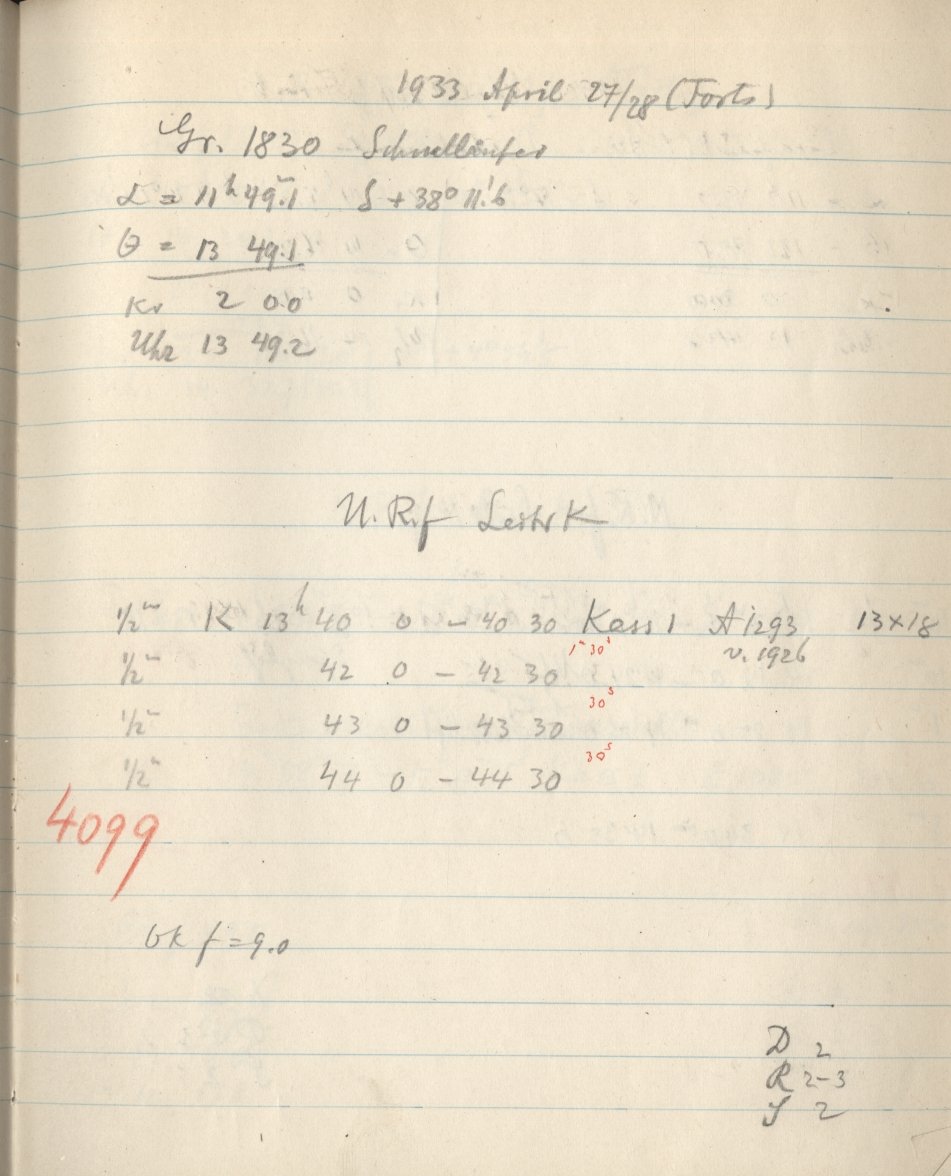 1933 April 27/28 (Forts)
Gr. 1830 Schnelläufer
α = 11ʰ 49ᵐ.1 δ + 38° 11'.6
θ = 13 49.1
Kr 2 0.0
Uhr 13 49.2
U. Rf LeitrK
1/2ᵐ K 13ʰ 40 0 – 40 30 Kass 1 A 1293 13×18
1ᵐ 30ˢ v. 1926
1/2ᵐ 42 0 – 42 30
30ˢ
1/2ᵐ 43 0 – 43 30
30ˢ
1/2ᵐ 44 0 – 44 30
4099
GK f = 9.0
D 2
R 2–3
S 2